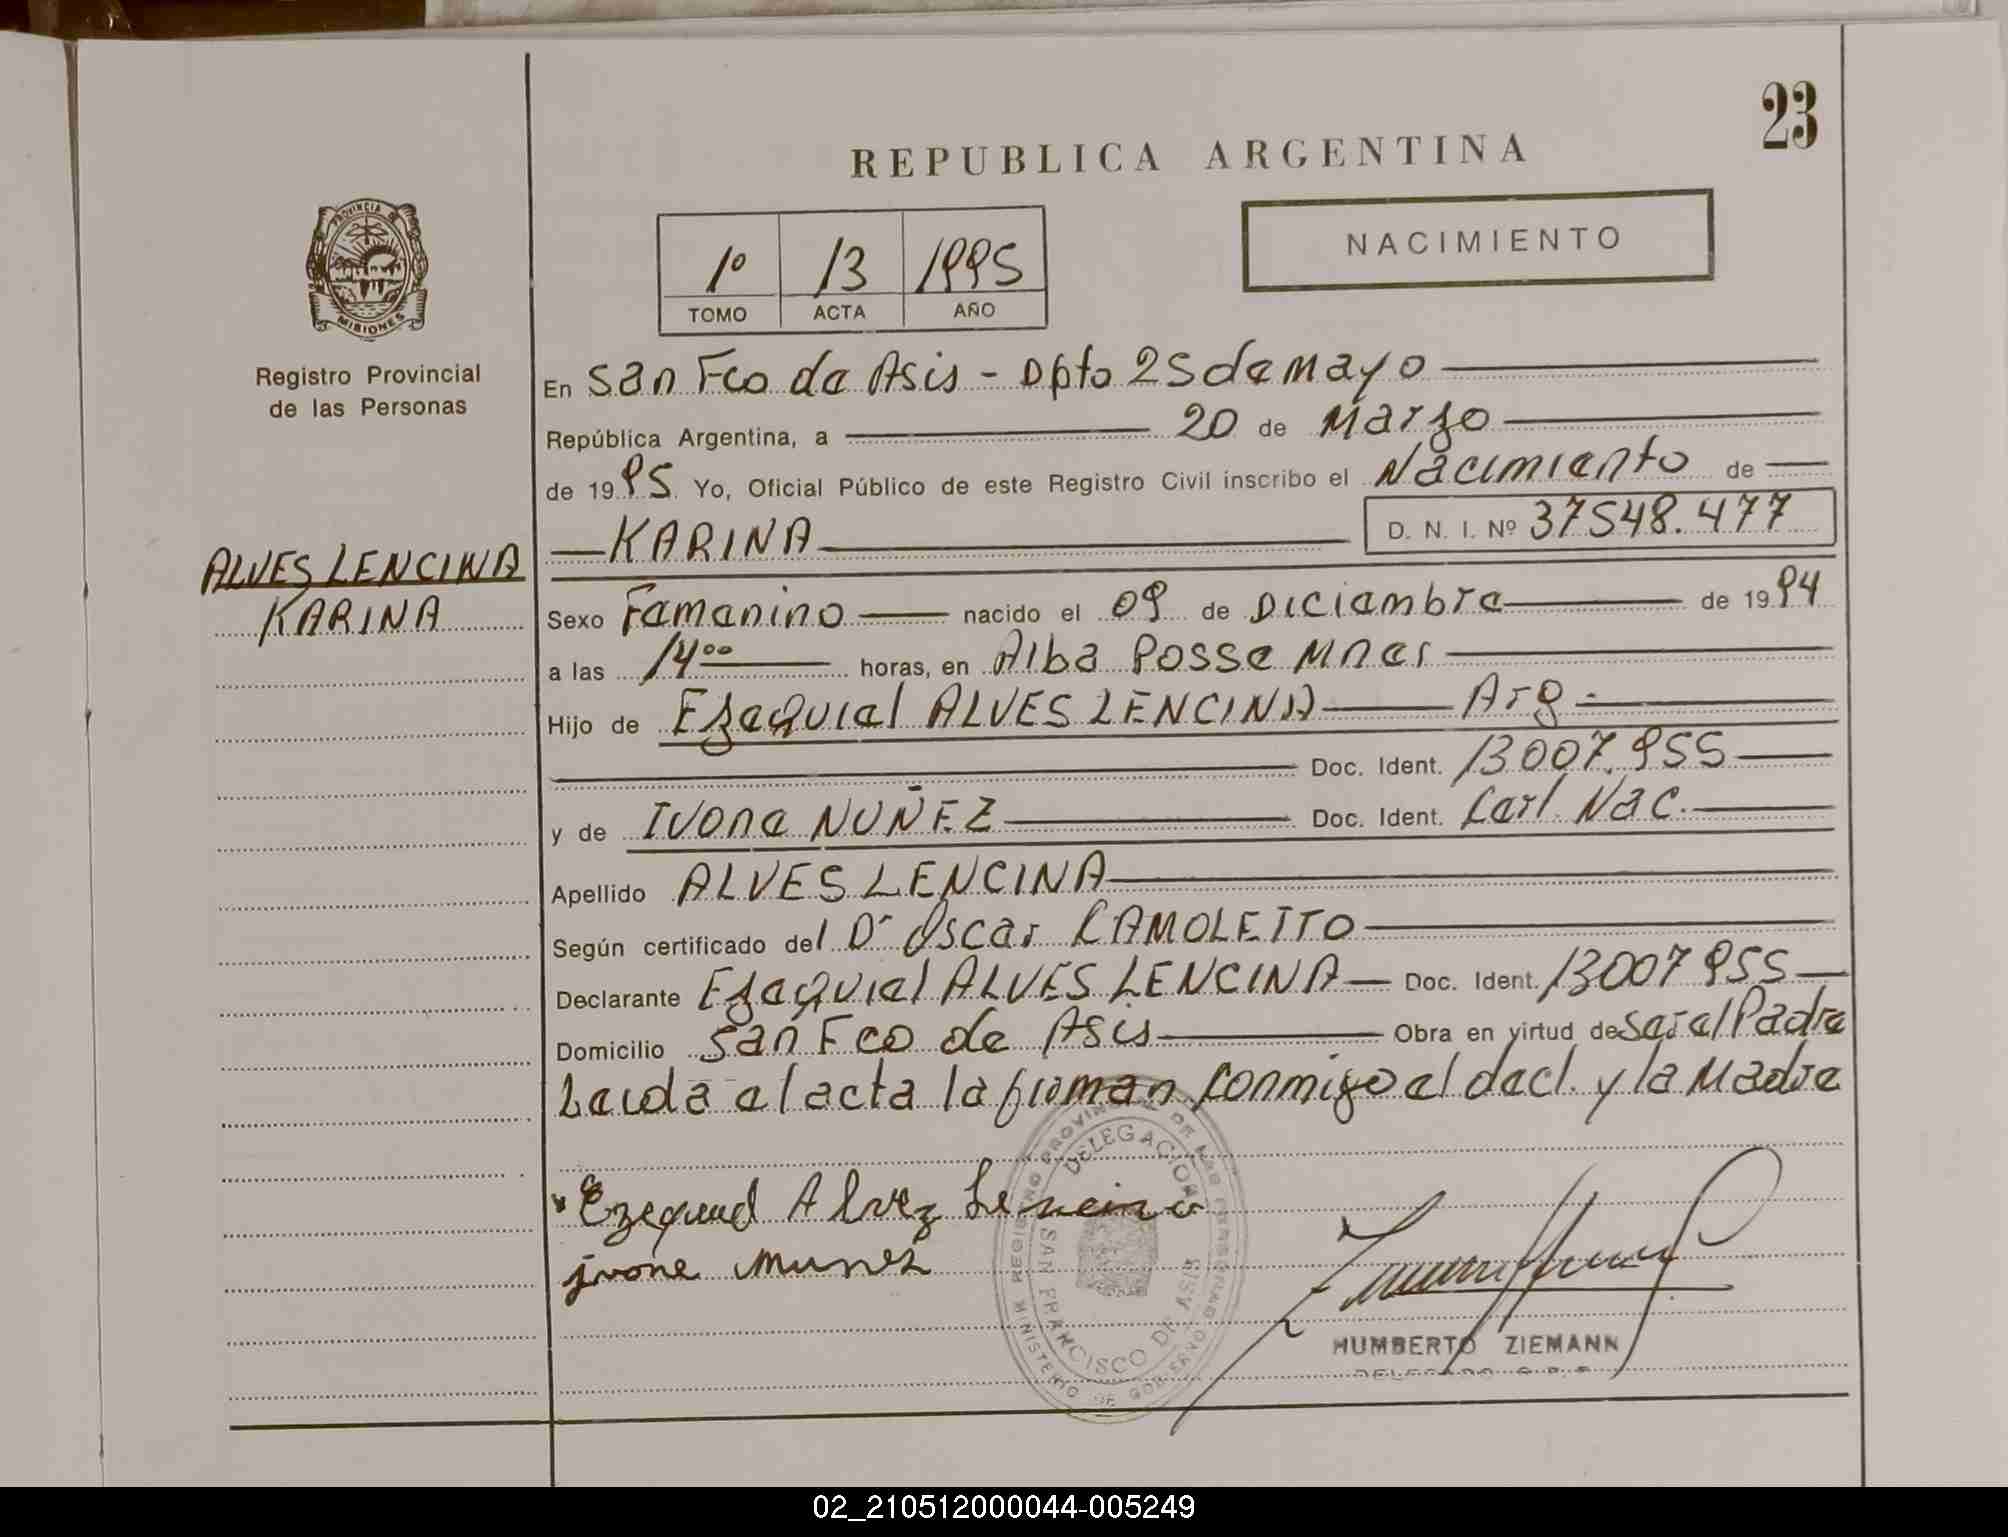 23
REPUBLICA ARGENTINA
NACIMIENTO
1º 13 1995
TOMO ACTA AÑO
PROVINCIA DE
MISIONES
Registro Provincial
de las Personas
ALVES LENCINA
KARINA
En San Fco de Asis - Dpto 25 de Mayo
República Argentina, a 20 de Marzo
de 1995 Yo, Oficial Público de este Registro Civil inscribo el Nacimiento de
KARINA D. N. I. Nº 37548.477
Sexo Femenino nacido el 09 de Diciembre de 1994
a las 14⁰⁰ horas, en Alba Posse Mnes
Hijo de Ezequiel ALVES LENCINA Arg.
Doc. Ident. 13007.955
y de Ivone NUÑEZ Doc. Ident. Carl. Nac.
Apellido ALVES LENCINA
Según certificado del Dr Oscar CAMOLETTO
Declarante Ezequiel ALVES LENCINA Doc. Ident. 13007955
Domicilio San Fco de Asis Obra en virtud de ser el Padre
Leida el acta la firman conmigo el decl. y la Madre
Ezequiel Alvez Lencina
jvone Munez
REGISTRO PROVINCIAL DE LAS PERSONAS
MINISTERIO DE GOBIERNO
DELEGACION
SAN FRANCISCO DE ASIS
HUMBERTO ZIEMANN
DELEGADO
02_210512000044-005249